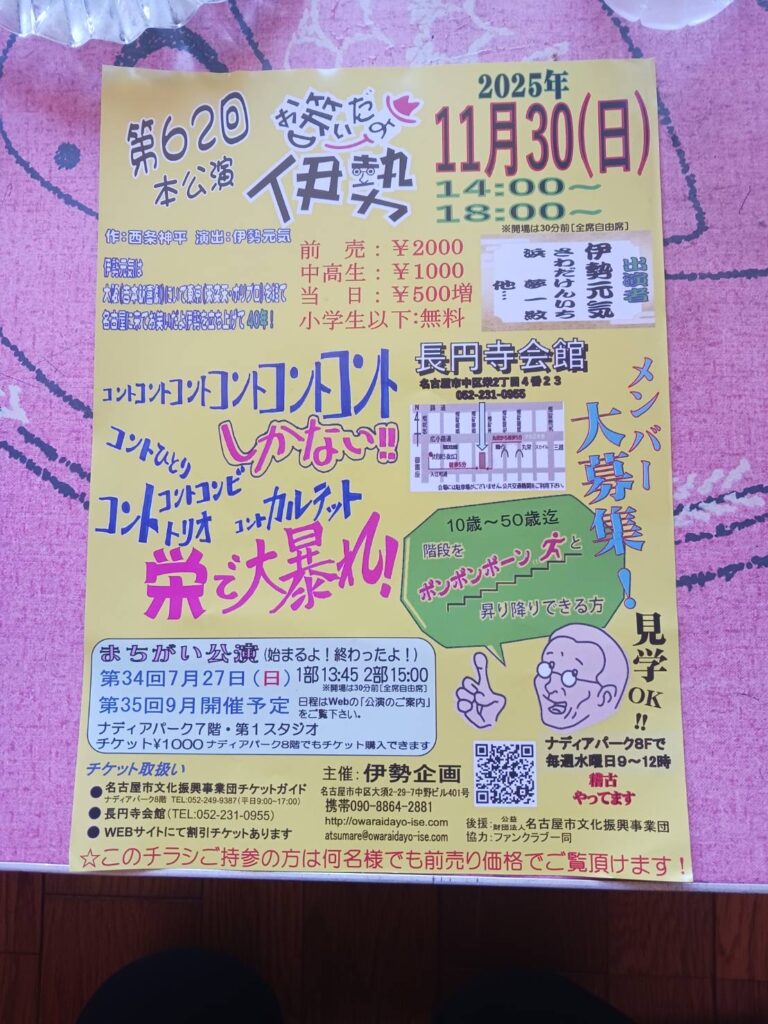 第62回
本公演
お笑いだよ
伊勢
2025年
11月30(日)
14:00～
18:00～
※開場は30分前[全席自由席]
作:西条神平 演出:伊勢元気
伊勢元気は
名古屋に来てお笑いだよ伊勢を立ち上げて 40年!
前売:￥2000
中高生:￥1000
当日:￥500増
小学生以下:無料
出演者
伊勢元気
さわだけんいち
浜 夢一
他…
コントコントコントコントコントコント
しかない!!
コントひとり
コントコンビ
コントトリオ
コントカルテット
栄で大暴れ!
長円寺会館
名古屋市中区栄2丁目4番23
052-231-0955
広小路通
徒歩5分
会場には駐車場がございません。公共交通機関をご利用下さい。
メンバー
大募集!
10歳～50歳迄
階段を
ポンポンポーンと
昇り降りできる方
見学
OK!!
ナディアパーク8Fで
毎週水曜日9～12時
稽古
やってます
まちがい公演(始まるよ!終わったよ!)
第34回7月27日(日)1部13:45 2部15:00
※開場は30分前[全席自由席]
第35回9月開催予定 日程はWebの「公演のご案内」
をご覧下さい。
ナディアパーク7階・第1スタジオ
チケット￥1000 ナディアパーク8階でもチケット購入できます
チケット取扱い
●名古屋市文化振興事業団チケットガイド
ナディアパーク8階 TEL:052-249-9387(平日9:00~17:00)
●長円寺会館(TEL:052-231-0955)
●WEBサイトにて割引チケットあります
主催:伊勢企画
名古屋市中区大須2-29-7中野ビル401号
携帯090-8864-2881
http://owaraidayo-ise.com
atsumare@owaraidayo-ise.com
後援:公益財団法人名古屋市文化振興事業団
協力:ファンクラブ一同
☆このチラシご持参の方は何名様でも前売り価格でご覧頂けます!